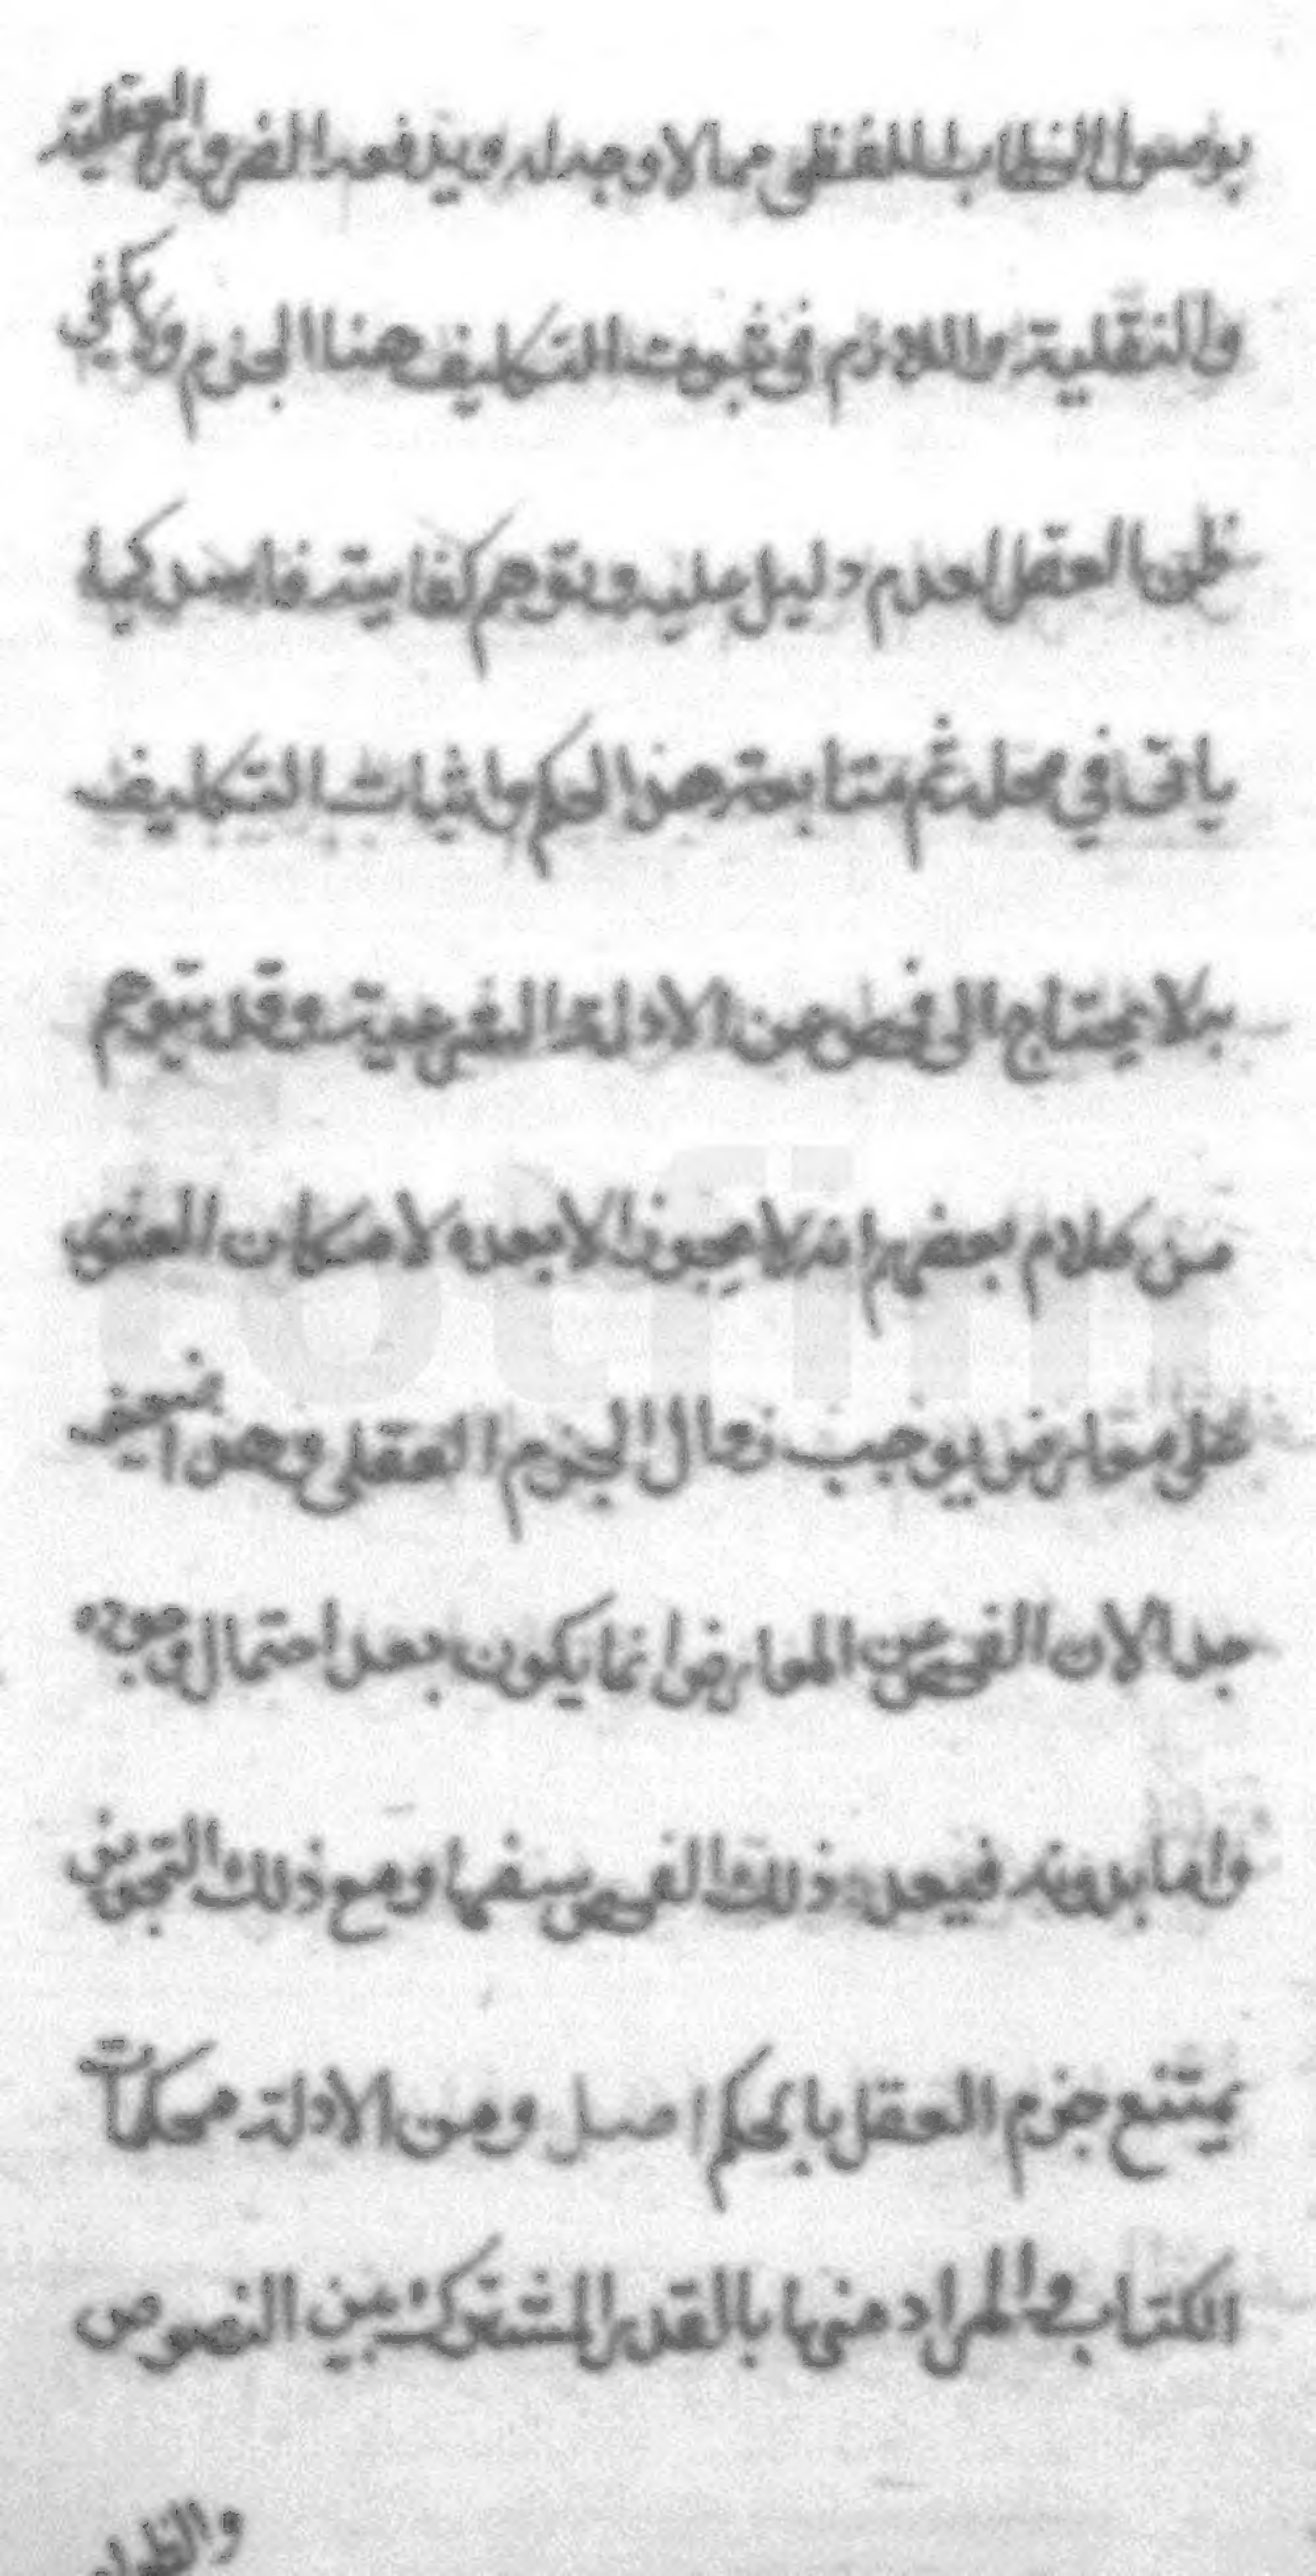 بوصول الخطاب اللفظى مما لا وجه له ويدفعه الضرورة العقلية
والنقلية واللازم فى ثبوت التكليف هنا الجزم ولا يكفى
ظن العقل لعدم دليل عليه وتوهم كفايته فاسد كما
ياتى فى محله ثم متابعة هذا الحكم واثبات التكليف
به لا يحتاج الى فحص عن الادلة الشرعية وقد يتوهم
من كلام بعضهم انه لا يجوز الا بعده لامكان العثور
على معارض يوجب زوال الجزم العقلى وهذا ضعيف
جدا لان الفحص عن المعارض انما يكون بعد احتمال وجوده
واما بدونه فيعد ذلك الفحص سفها ومع ذلك التجويز
يمتنع جزم العقل بالحكم اصل ومن الادلة محكمات
الكتاب والمراد منها بالقدر المشترك بين النصوص
والظواهر